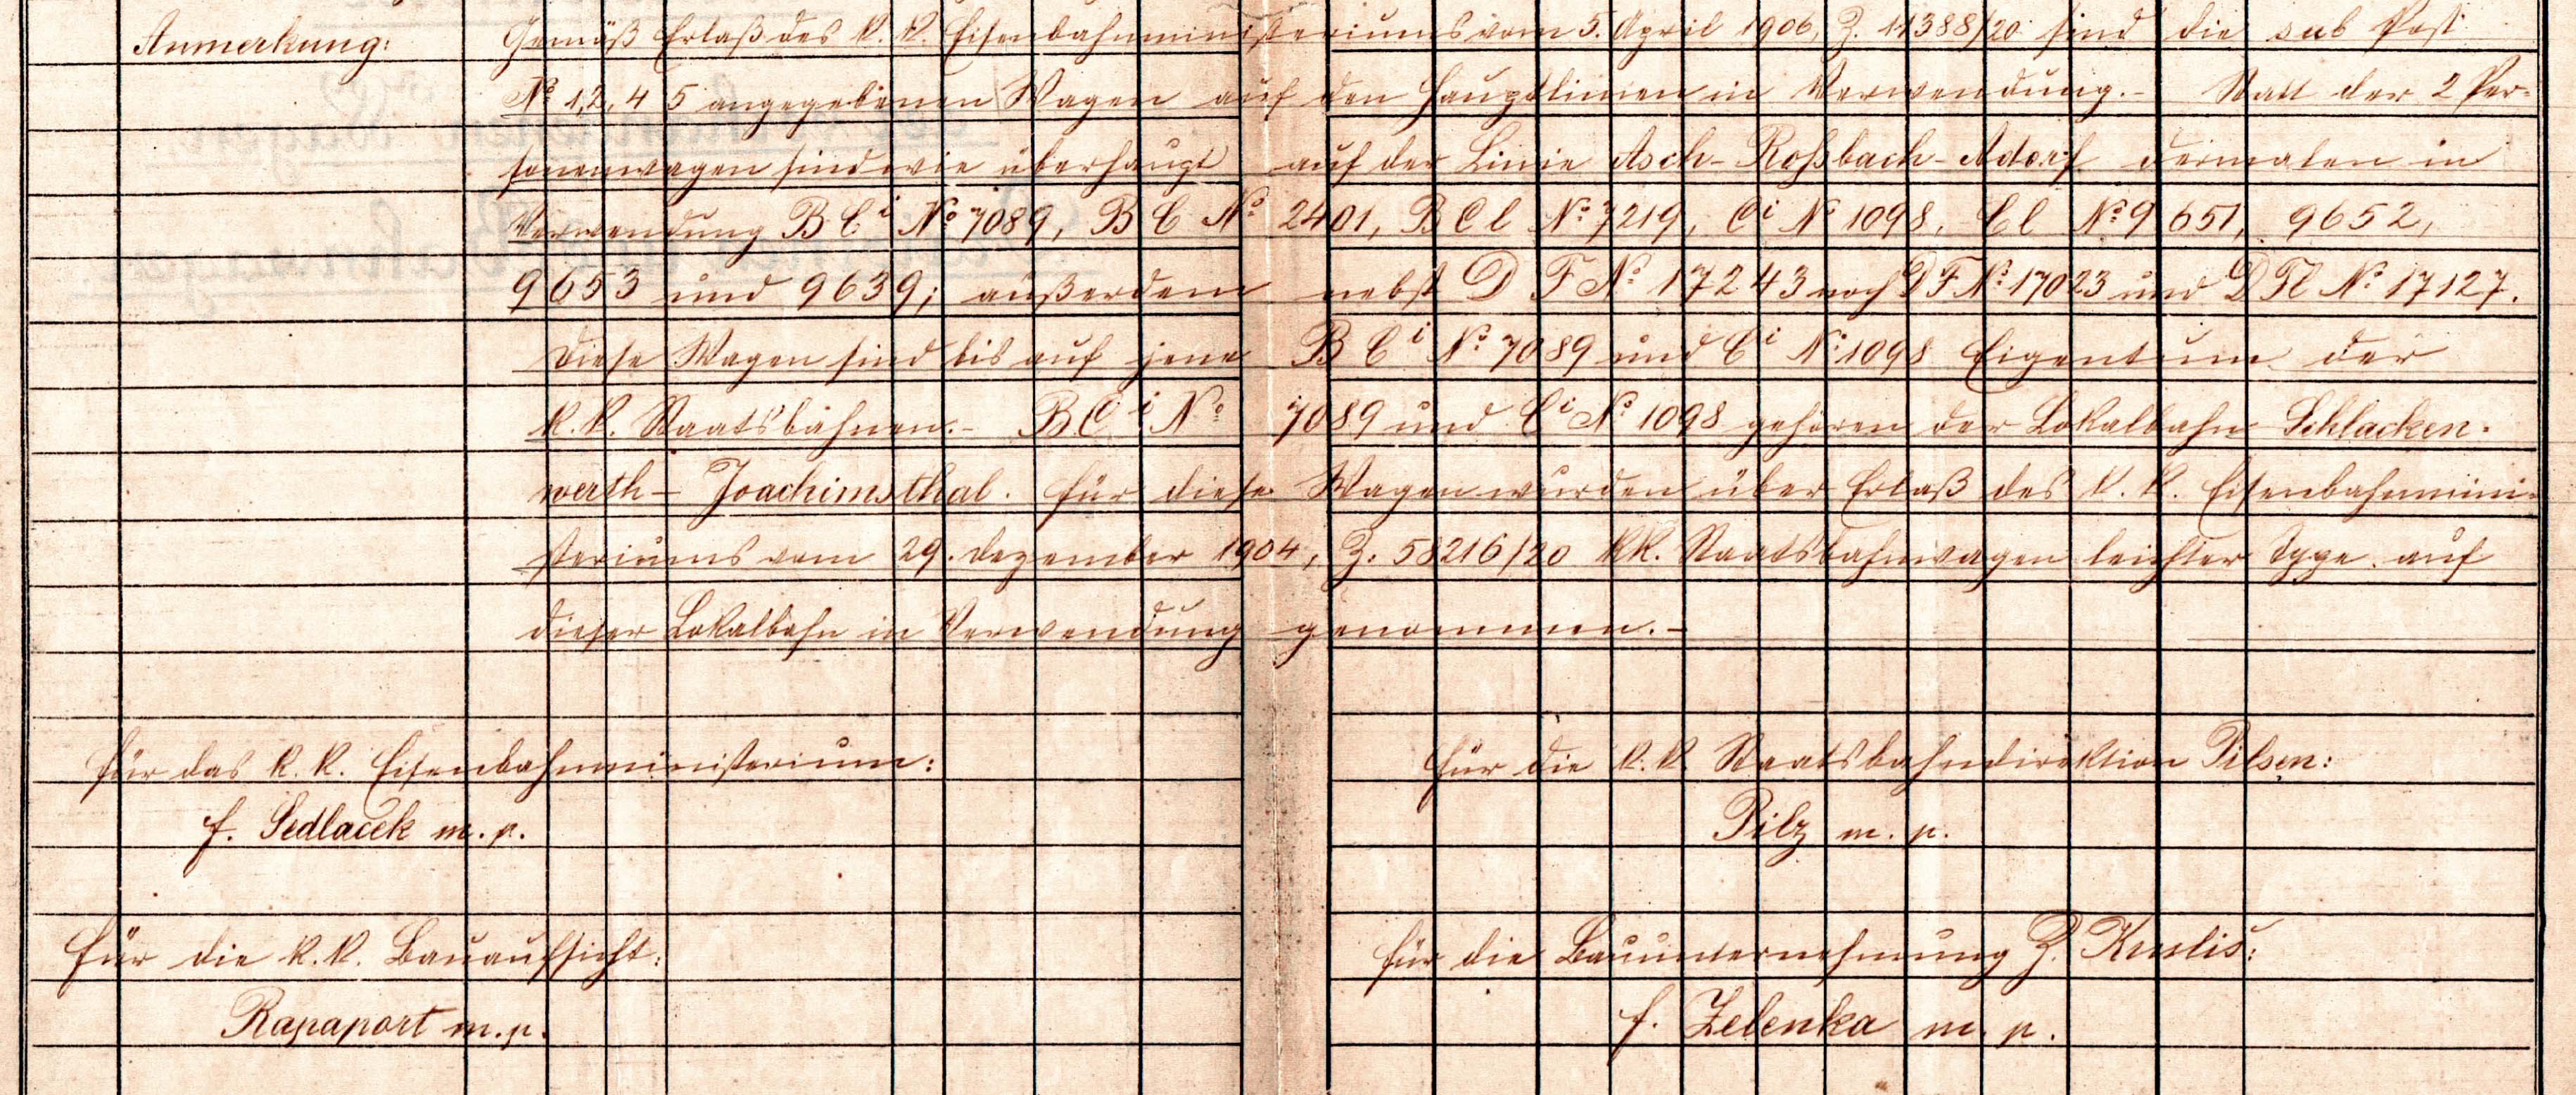 Anmerkung: Gemäß Erlaß des k. k. Eisenbahnministeriums vom 5. April 1906, Z. 11388/20 sind die sub Post
No 1, 2, 4 5 angegebenen Wagen auf den Hauptlinien in Verwendung.- Statt der 2 Per-
sonenwagen sind wie überhaupt auf der Linie Asch-Roßbach-Adorf dermalen in
Verwendung BCi No 7089, BC No 2401, BCl No 7219, Ci No 1098, Cl No 9651, 9652,
9653 und 9639; außerdem nebst DF No 17243 noch DF No 17023 und DFl No 17127.
Diese Wagen sind bis auf jene BCi No 7089 und Ci No 1098 Eigentum der
k. k. Staatsbahnen.- BCi No 7089 und Ci No 1098 gehören der Lokalbahn Schlacken-
werth - Joachimsthal. Für diese Wagen wurden über Erlaß des k. k. Eisenbahnmini-
steriums vom 29. Dezember 1904, Z. 58216/20 kk. Staatsbahnwagen leichter Type auf
dieser Lokalbahn in Verwendung genommen.-
Für das k. k. Eisenbahnministerium: Für die k. k. Staatsbahndirektion Pilsen:
F. Sedlacek m. p. Pilz m. p.
Für die k. k. Bauaufsicht: Für die Bauunternehmung J.
Rapaport m. p. F. Zelenka m. p.